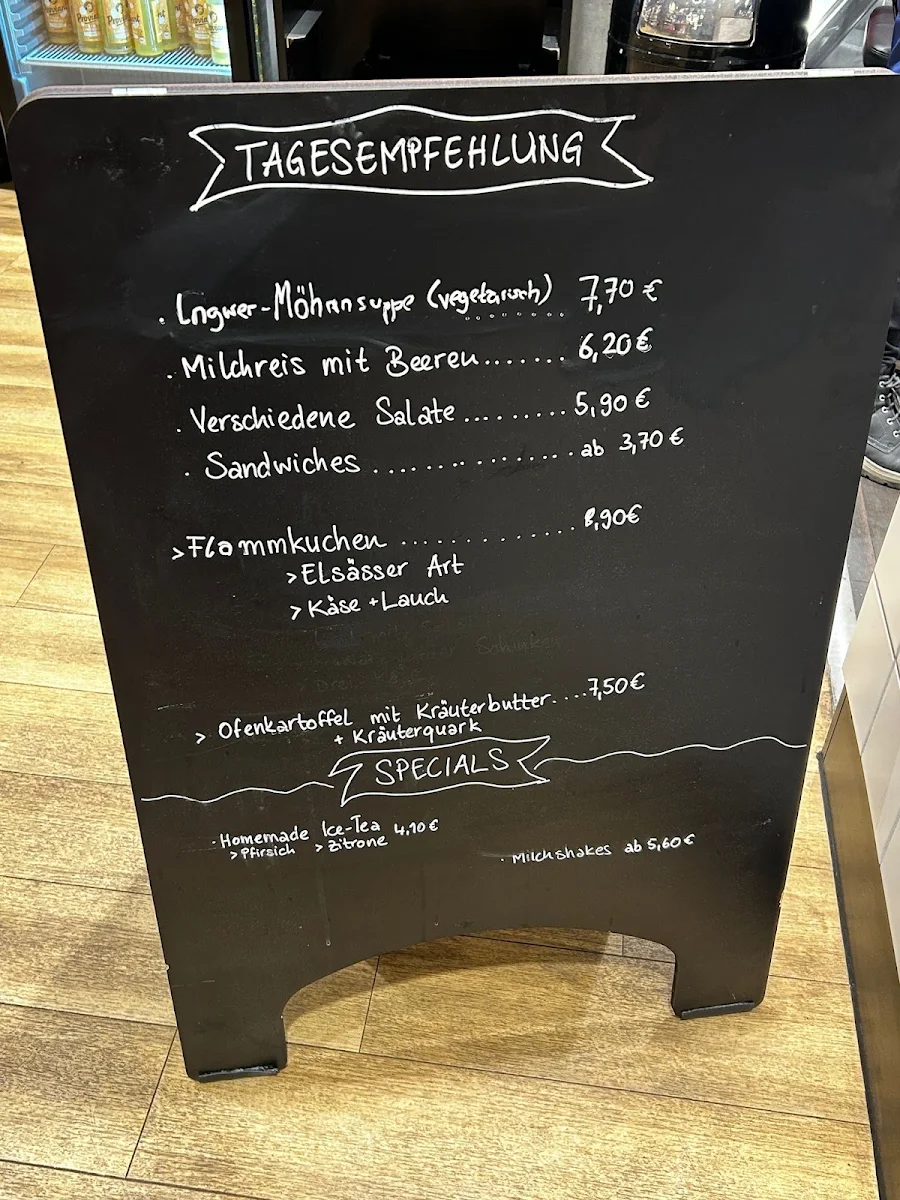 TAGESEMPFEHLUNG
. Ingwer-Möhrensuppe (vegetarisch) ........ 7,70 €
. Milchreis mit Beeren....... 6,20 €
. Verschiedene Salate ......... 5,90 €
. Sandwiches ................. ab 3,70 €
>Flammkuchen ............. 8,90€
>Elsässer Art
> Käse + Lauch
Schinken
> Ofenkartoffel mit Kräuterbutter....7,50€
+ Kräuterquark
SPECIALS
. Homemade Ice-Tea 4,10 €
> Pfirsich > Zitrone
. Milchshakes ab 5,60 €